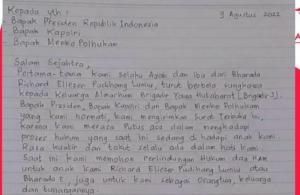 Kepada yth : 9 Agustus 2022
- Bapak Presiden Republik Indonesia
- Bapak Kapolri
- Bapak Menko Polhukam
Salam Sejahtra,
Pertama-tama kami selaku Ayah dan Ibu dari Bharada
Richard Eliezer Pudihang Lumiu, turut berbela sungkawa
kepada keluarga Almarhum Brigadir Yosua Hutabarat (Brigadir J).
Bapak Presiden, Bapak Kapolri dan Bapak Menko Polhukam
yang kami hormati, kami mengirimkan Surat Terbuka ini,
karena kami merasa Putus asa dalam menghadapi
proses hukum yang saat ini sedang di hadapi anak kami.
Rasa kuatir dan takut selalu ada dalam hati kami.
Saat ini kami memohon Perlindungan Hukum dan HAM
untuk anak kami Richard Eliezer Pudihang Lumiu atau
Bharada E, juga untuk kami sebagai Orangtua, keluarga
dan tunangannya.